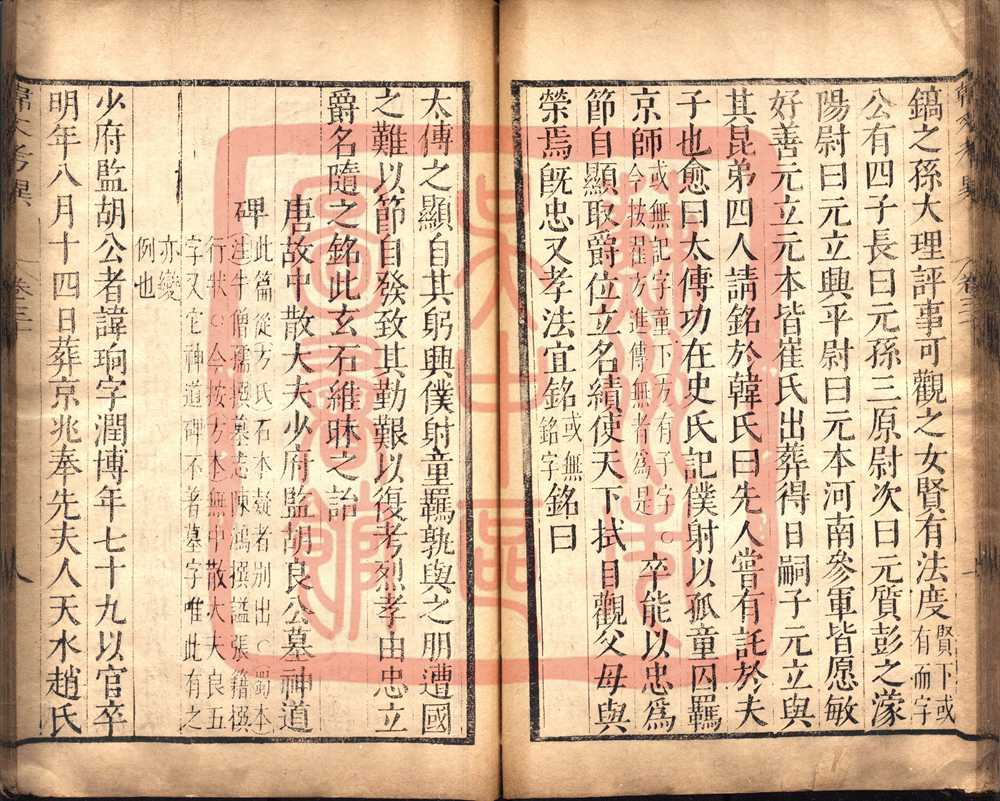 鎬之孫大理評事可觀之女賢有法度賢下或有而字
公有四子長曰元孫三原尉次曰元質彭之濛
陽尉曰元立興平尉曰元本河南參軍皆愿敏
好善元立元本皆崔氏出葬得日嗣子元立與
其昆弟四人請銘於韓氏曰先人嘗有託於夫
子也愈曰太傅功在史氏記僕射以孤童囚羈
京師或無記字童下方有子字○今按翟方進傳無者為是卒能以忠為
節自顯取爵位立名績使天下拭目觀父母與
榮焉旣忠又孝法宜銘或無銘字銘曰
太傅之顯自其躬興僕射童羈孰與之朋遭國
之難以節自發致其勤艱以復考烈孝由忠立
爵名隨之銘此玄石維昧之詒
唐故中散大夫少府監胡良公墓神道
碑此篇從方氏石本疑者別出○蜀本注牛僧孺撰墓志陳鴻撰謚張籍撰
行狀○今按方本無中散大夫良五字又它神道碑不著墓字唯此有之
亦變例也
少府監胡公者諱珦字潤博年七十九以官卒
明年八月十四日葬京兆奉先夫人天水趙氏
卷三
八